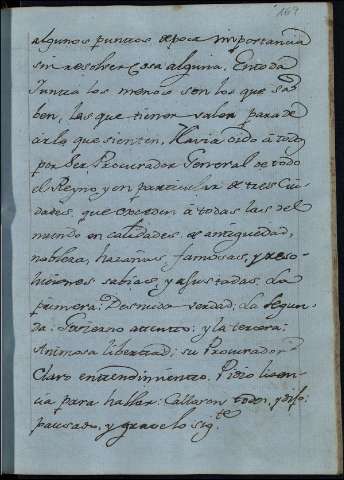 169
algunos puntos de poca importancia
sin resolver cosa alguna. En toda
Junta los menos son los que sa-
ben, las que tienen valor para de-
cir lo que sienten. Havia oido à todos
por ser Procurador General de todo
el Reyno, y en particular de tres Ciu-
dades, que exceden à todas las del
mundo en calidades de antiguedad,
nobleza, hazañas famosas, y reso-
luciones sabias, y ajustadas. La
primera: Desnuda verdad; La segun-
da: atento: y la tercera:
Animosa libertad; su Procurador
Claro entendimiento. Pidio licen-
cia para hablar: Callaron todos, y dijo:
pausado, y grave lo sig.te